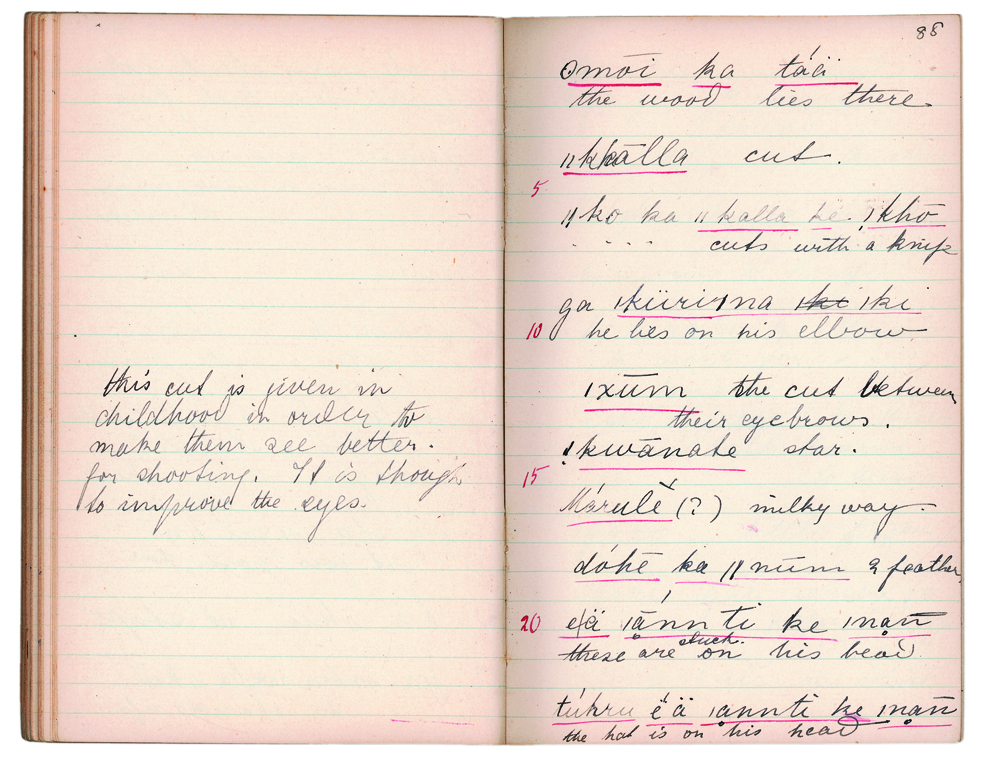 this cut is given in
childhood in order to
make them see better.
for shooting. It is though
to improve the eyes.
88
omoi ka táä
the wood lies there
ǁkkālla cut.
5
ǁko ka ǁkalla ke. ǃkhō
cuts with a knife
ga ǀküriǀna ǀki ǀki
10 he lies on his elbow
ǀxūm the cut between
their eyebrows.
ǃkwānate star.
15
Márulĕ (?) milky way.
dóhē ka ǁnūm 2 feather
20 ǀānn ti ke ǀnan̄
these are stuck on his head
túhru é ä ǀannti ke ǀnan̄
the hat is on his head